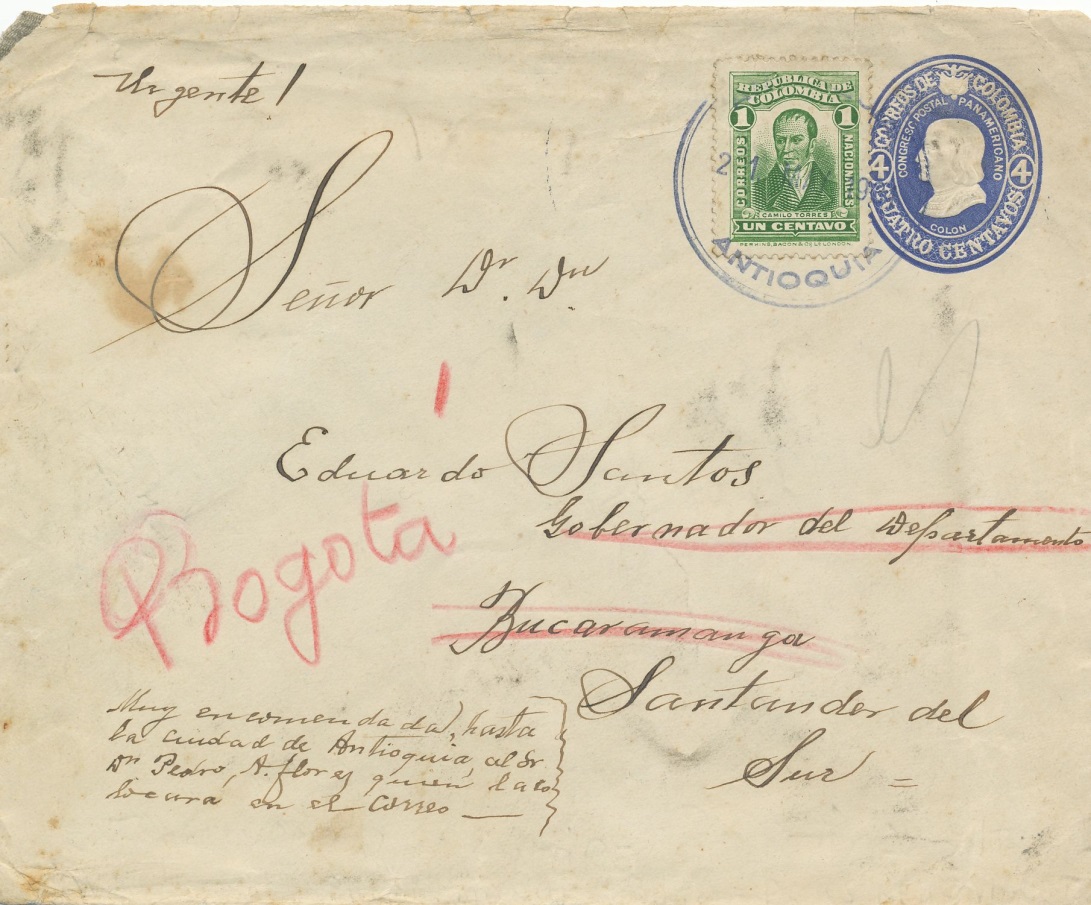 Urgente!
REPÚBLICA DE
COLOMBIA
1 1
CORREOS
NACIONALES
CAMILO TORRES
UN CENTAVO
PERKINS, BACON & Cº LD LONDON.
CORREOS DE COLOMBIA
CONGRESO POSTAL PANAMERICANO
4 4
COLON
CUATRO CENTAVOS
21
ANTIOQUIA
Señor Dr. Dn
Eduardo Santos
Gobernador del Departamento
Bogotá
Bucaramanga
Santander del
Sur =
Muy encomendada, hasta
la ciudad de Antioquia, al Sr
Dn Pedro, A. flores quien la co
locará en el Correo